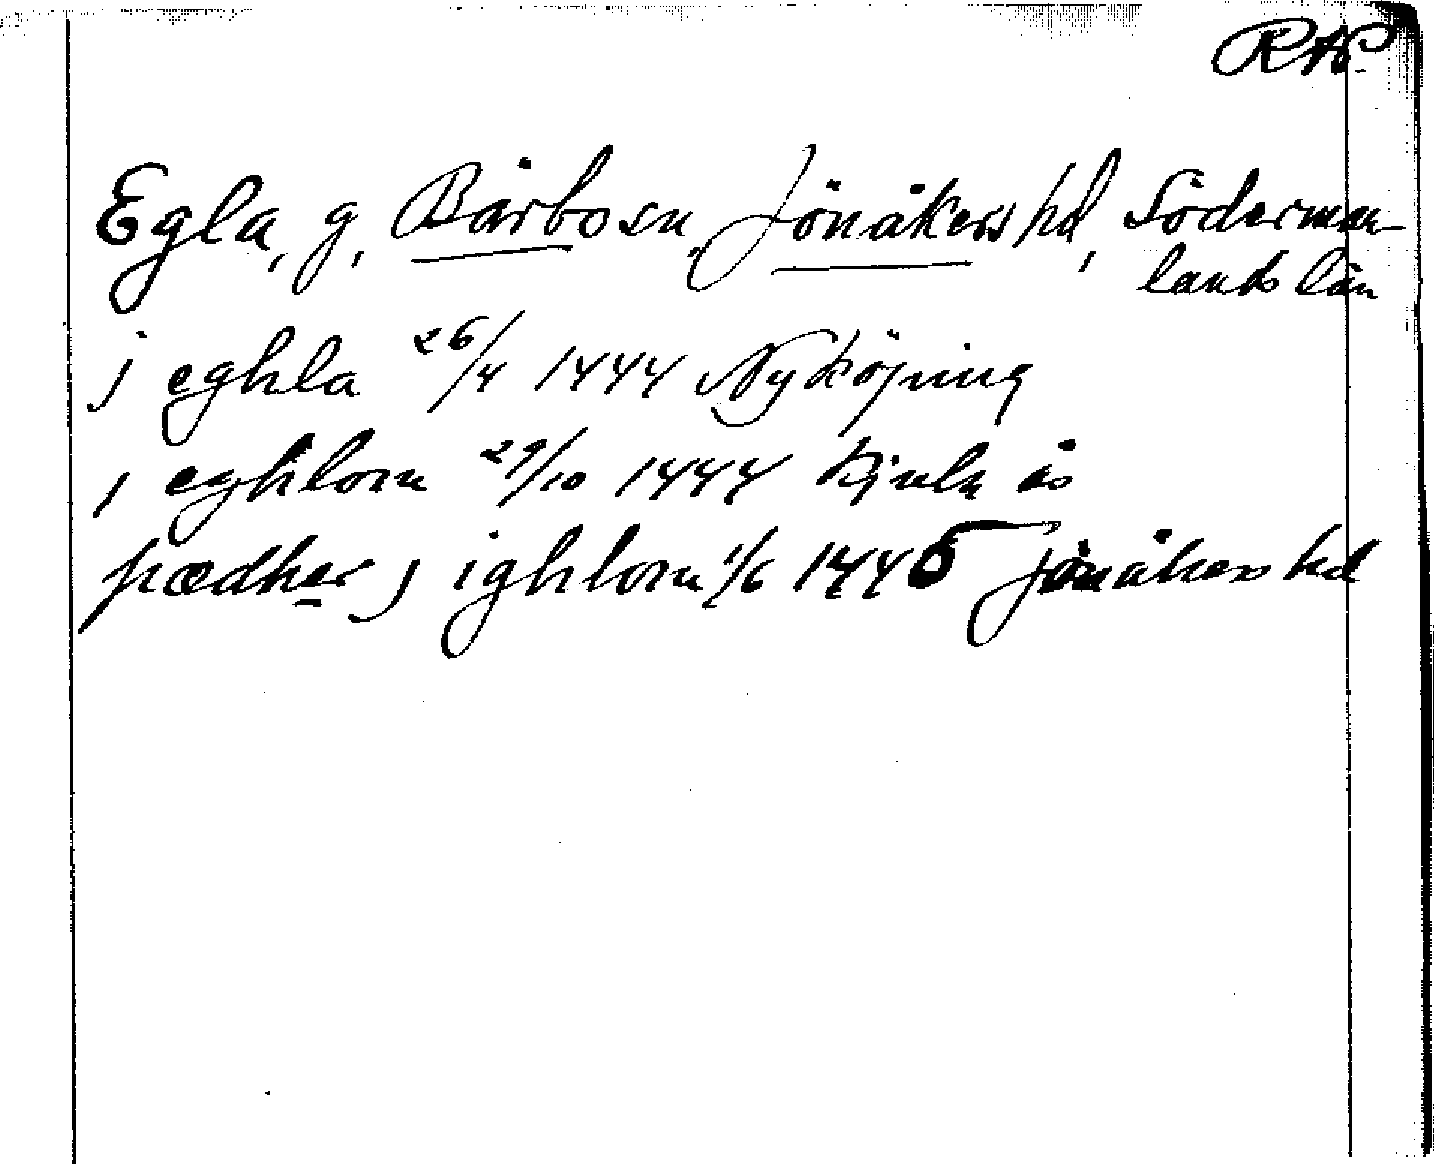 RAP
Egla, g, Bärbo sn, Jönåkers hd, Söderman-
lands län
j eghla 26/4 1444 Nyköping
j eghlom 29/10 1444 Kjula ås
pædher j ighlom 1/6 1445 Jönåkers hd